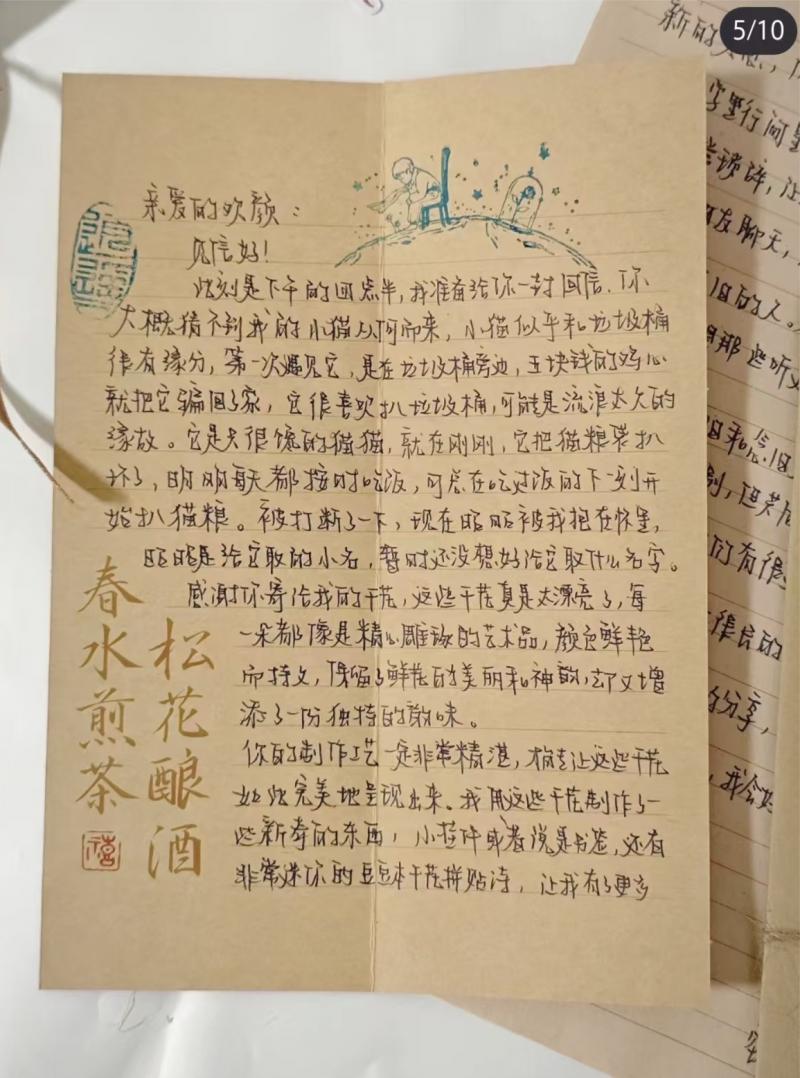 5/10
亲爱的欢颜：
见信好！
此刻是下午的四点半，我准备给你一封回信，你
大概猜不到我的小猫从何而来，小猫似乎和垃圾桶
很有缘分，第一次遇见它，是在垃圾桶旁边，五块钱的鸡心
就把它骗回了家，它很喜欢扒垃圾桶，可能是流浪太久的
缘故。它是只很馋的猫猫，就在刚刚，它把猫粮袋扒
坏了，明明每天都按时吃饭，可总在吃过饭的下一刻开
始扒猫粮。被打断了一下，现在昭昭被我抱在怀里，
昭昭是给它取的小名，暂时还没想好给它取什么名字。
感谢你寄给我的干花，这些干花真是太漂亮了，每
一朵都像是精心雕琢的艺术品，颜色鲜艳
而持久，保留了鲜花的美丽和神韵，却又增
添了一份独特的韵味。
你的制作工艺一定非常精湛，才能让这些干花
如此完美地呈现出来。我用这些干花制作了一
些新奇的东西，小挂件或者说是书签，还有
非常迷你的豆本干花拼贴诗，让我有了更多
春水煎茶
松花酿酒
新的
字里行间
友聊天，
旧的人。
那些听
的有很
的分享，
，我会